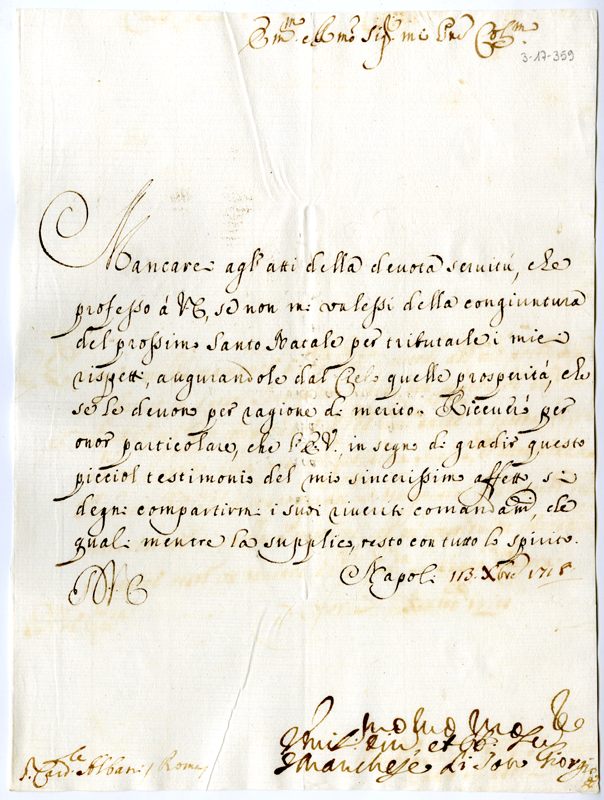 Em.mo e R.mo Sig.r mio P.ne Col.mo
3-17-359
Mancarei agl'atti della devota servitù, che
professo à V.E., se non mi valessi della congiuntura
del prossimo Santo Natale per tributarle i miei
rispetti, augurandole dal Cielo quelle prosperità, che
se le devono per ragione di merito. Riceverò per
onor particolare, che l'E.V. in segno di gradir questo
picciol testimonio del mio sincerissimo affetto, si
degni compartirmi i suoi riveriti comandam.ti, de
quali mentre la supplico, resto con tutto lo spirito.
Napoli 113 Xbre 1718
D V E
S. Card.le Albani / Roma /
Hum.mo Dev.mo et Ob. Se
Marchese di San Giorgio